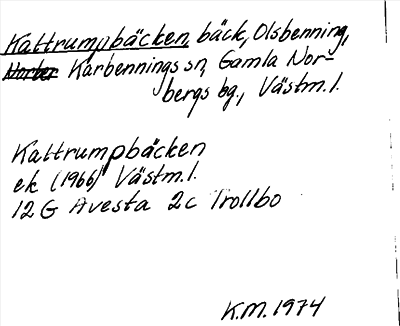 Kattrumpbäcken, bäck, Olsbenning,
Karbennings sn, Gamla Nor-
bergs bg., Västm. l.
Kattrumpbäcken
ek (1966) Västm. l.
12 G Avesta 2c Trollbo
K.M. 1974